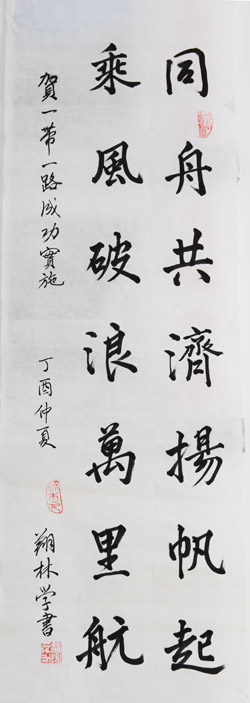 同舟共濟揚帆起
乘風破浪萬里航
賀一帶一路成功實施
丁酉仲夏
翔林学書